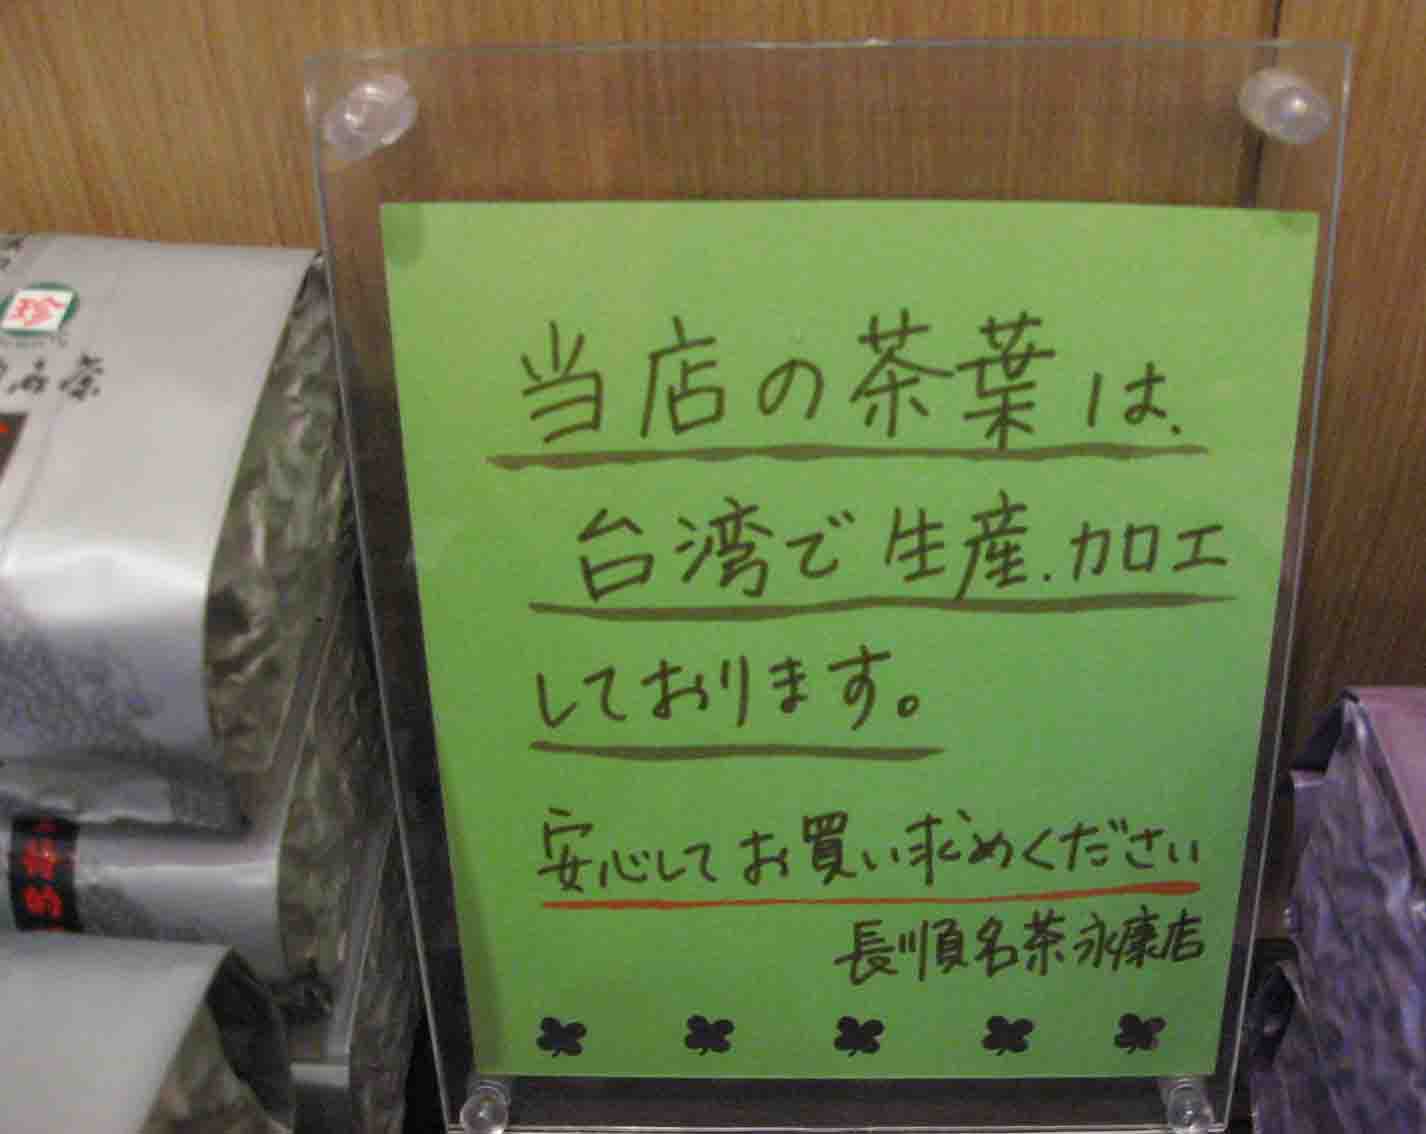 当店の茶葉は、
台湾で生産、加工
しております。
安心してお買い求めください
長順名茶永康店
珍
茶